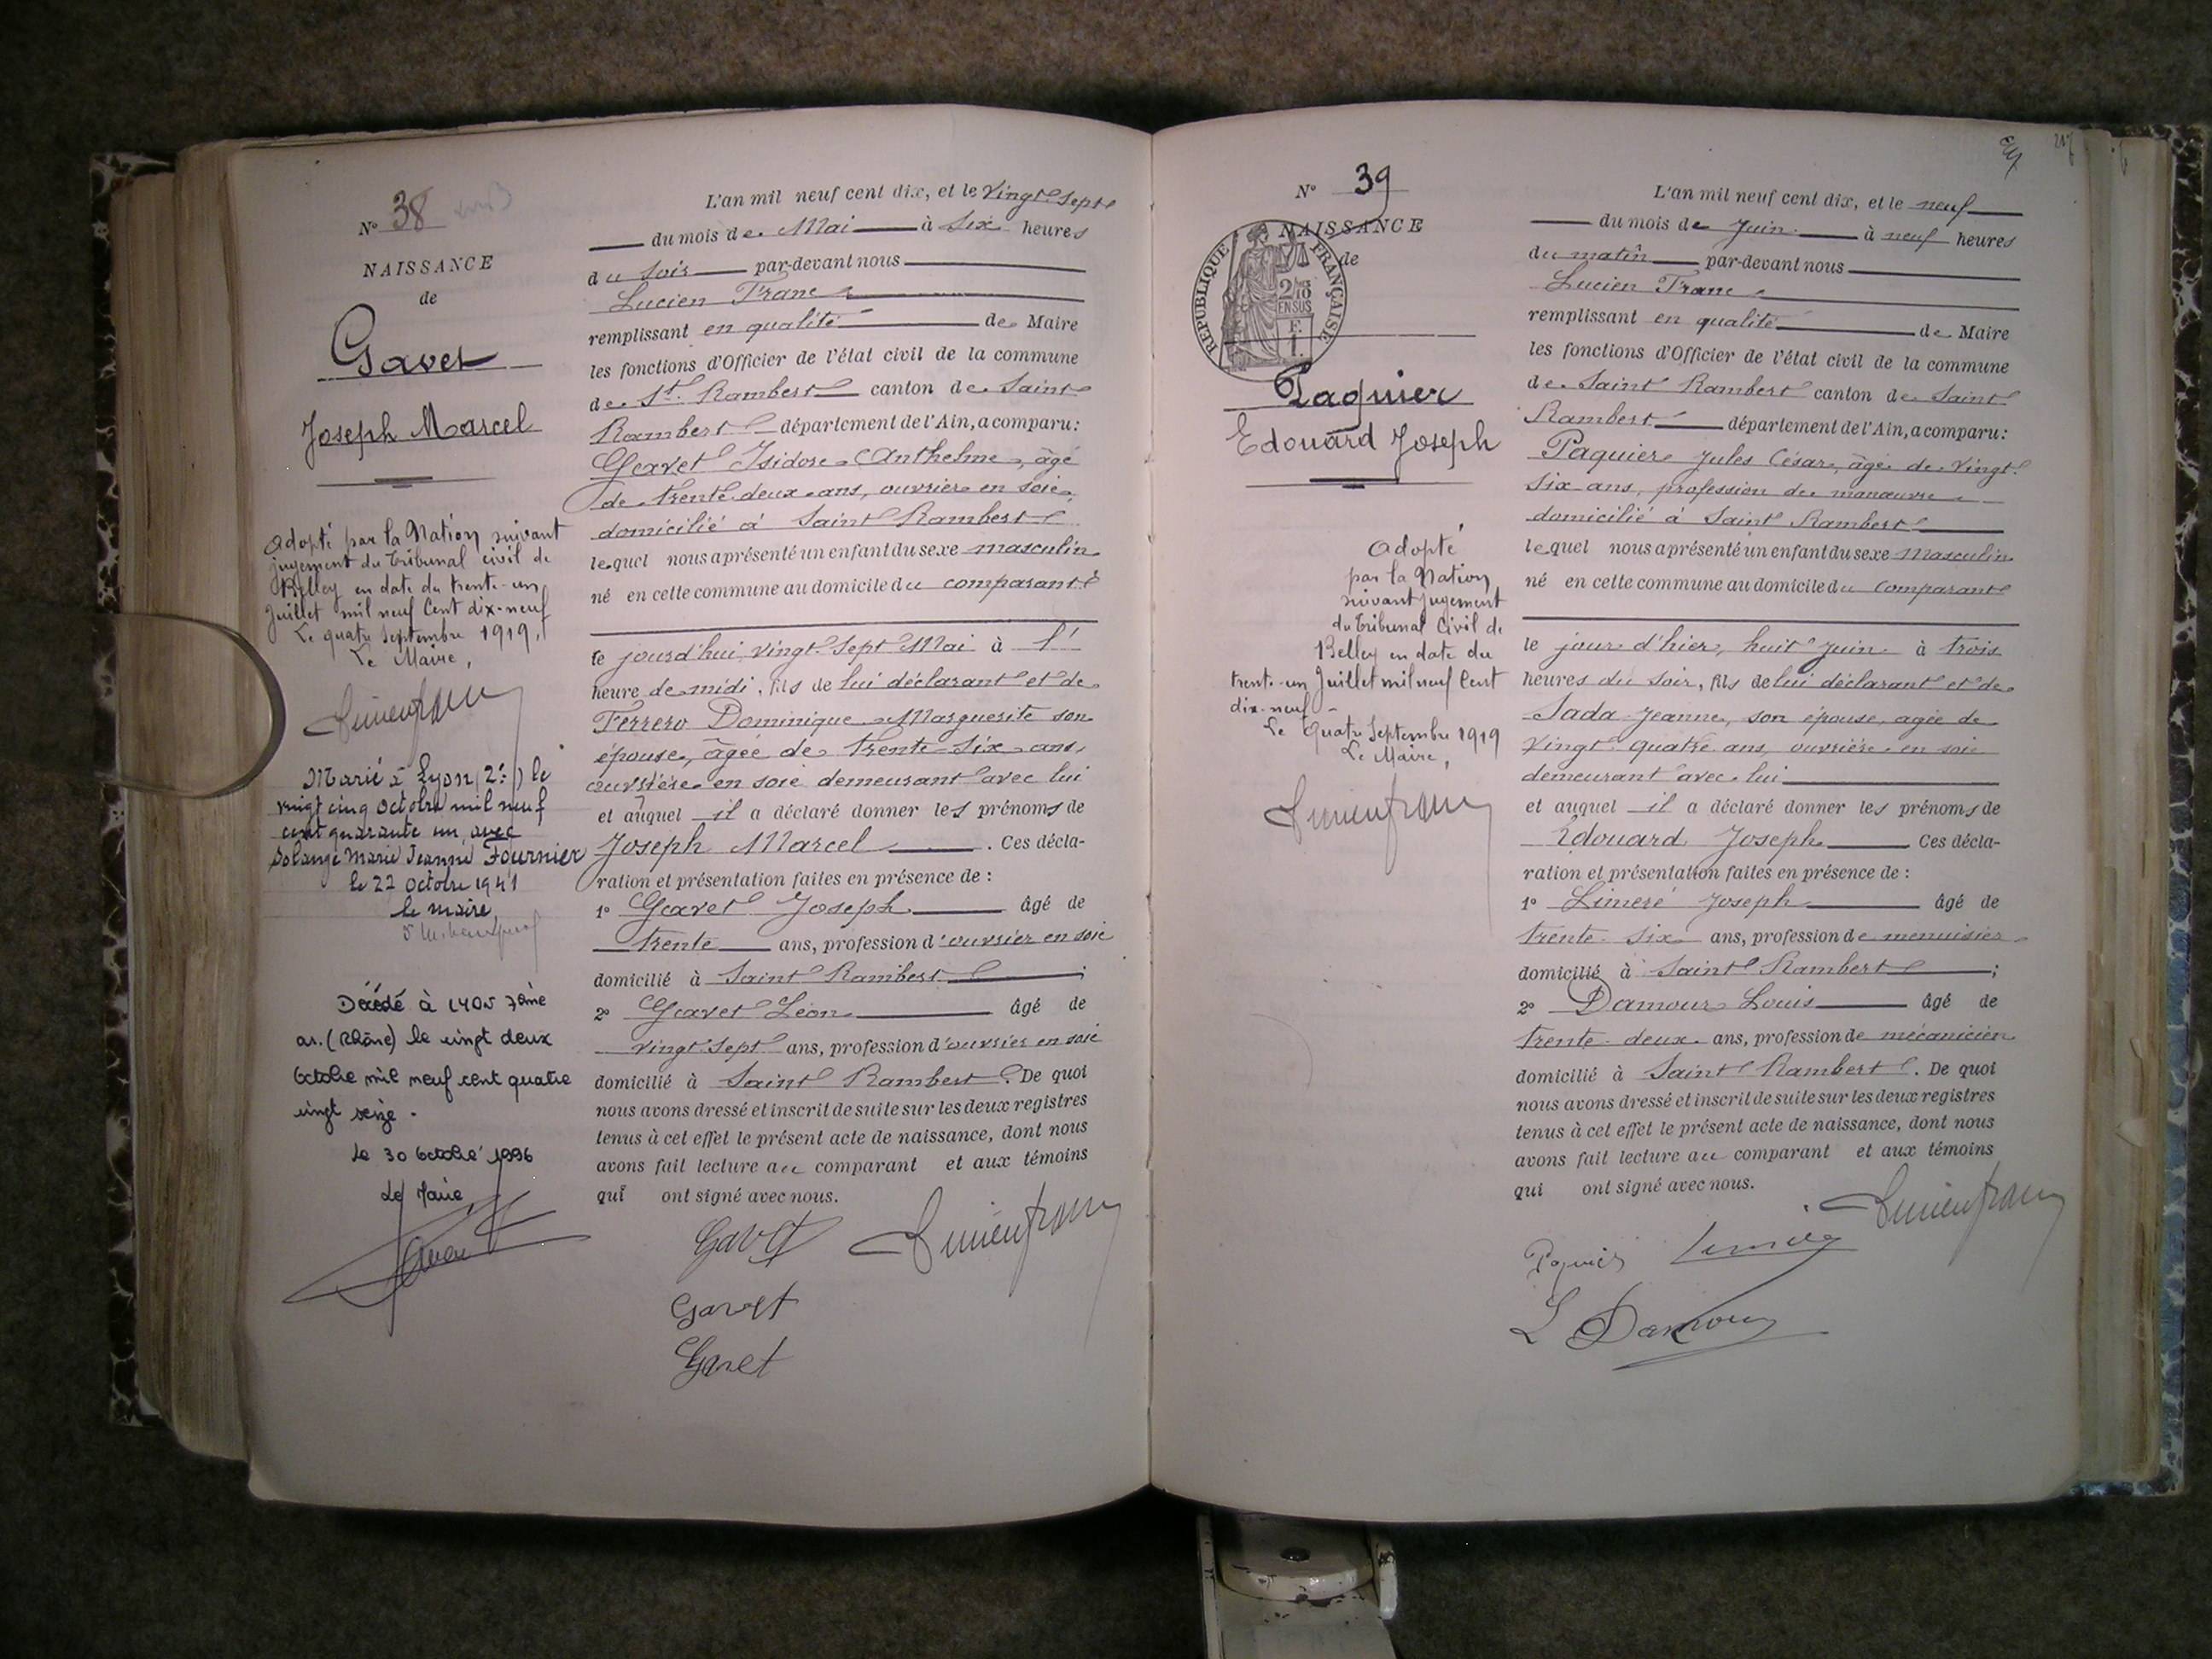 N° 38
NAISSANCE
de
Gavet
Joseph Marcel
Adopté par la Nation suivant
jugement du Tribunal civil de
Belley en date du trente-un
Juillet mil neuf Cent dix-neuf
Le quatre Septembre 1919,
Le Maire,
Lucien franc
Marié à Lyon (2e) le
vingt cinq octobre mil neuf
cent quarante un avec
Solange Marie Jeanne Fournier
le 27 octobre 1941
le maire,
Décédé à LYON 7ème
ar. (Rhône) le vingt deux
Octobre mil neuf cent quatre
vingt seize.
Le 30 Octobre 1996
Le Maire
L'an mil neuf cent dix, et le vingt-sept
du mois de Mai à six heures
du soir par-devant nous
Lucien Franc
remplissant en qualité de Maire
les fonctions d'Officier de l'état civil de la commune
de St. Rambert canton de Saint
Rambert département de l'Ain, a comparu:
Gavet Isidore Anthelme, âgé
de trente deux ans, ouvrier en soie,
domicilié à Saint Rambert
lequel nous a présenté un enfant du sexe masculin
né en cette commune au domicile du comparant
le jourd'hui vingt-sept Mai à l'
heure de midi, fils de lui déclarant et de
Ferrero Dominique Marguerite son
épouse, âgée de trente-six ans,
ouvrière en soie demeurant avec lui
et auquel il a déclaré donner les prénoms de
Joseph Marcel . Ces décla-
ration et présentation faites en présence de :
1° Gavet Joseph âgé de
trente ans, profession d'ouvrier en soie
domicilié à Saint Rambert ;
2° Gavet Léon âgé de
vingt-sept ans, profession d'ouvrier en soie
domicilié à Saint Rambert. De quoi
nous avons dressé et inscrit de suite sur les deux registres
tenus à cet effet le présent acte de naissance, dont nous
avons fait lecture au comparant et aux témoins
qui ont signé avec nous.
Gavet Lucien franc
Gavet
Gavet
N° 39
NAISSANCE
de
RÉPUBLIQUE FRANÇAISE
2/10
EN SUS
Paquier
Edouard Joseph
Adopté
par la Nation
suivant jugement
du Tribunal Civil de
Belley en date du
trente-un Juillet mil neuf Cent
dix-neuf -
Le Quatre Septembre 1919
Le Maire,
Lucien franc
L'an mil neuf cent dix, et le neuf
du mois de Juin à neuf heures
du matin par-devant nous
Lucien Franc
remplissant en qualité de Maire
les fonctions d'Officier de l'état civil de la commune
de Saint Rambert canton de Saint
Rambert département de l'Ain, a comparu:
Paquier Jules César, âgé de vingt
six ans, profession de manœuvre
domicilié à Saint Rambert
lequel nous a présenté un enfant du sexe Masculin
né en cette commune au domicile du comparant
le jour d'hier, huit Juin à trois
heures du soir, fils de lui déclarant et de
Sada Jeanne, son épouse, agée de
vingt quatre ans, ouvrière en soie
demeurant avec lui
et auquel il a déclaré donner les prénoms de
Edouard Joseph Ces décla-
ration et présentation faites en présence de :
1° Liméré Joseph âgé de
trente-six ans, profession de menuisier
domicilié à Saint Rambert ;
2° Damour Louis âgé de
trente-deux ans, profession de mécanicien
domicilié à Saint Rambert. De quoi
nous avons dressé et inscrit de suite sur les deux registres
tenus à cet effet le présent acte de naissance, dont nous
avons fait lecture au comparant et aux témoins
qui ont signé avec nous.
Lucien franc
Paquier
L Damour